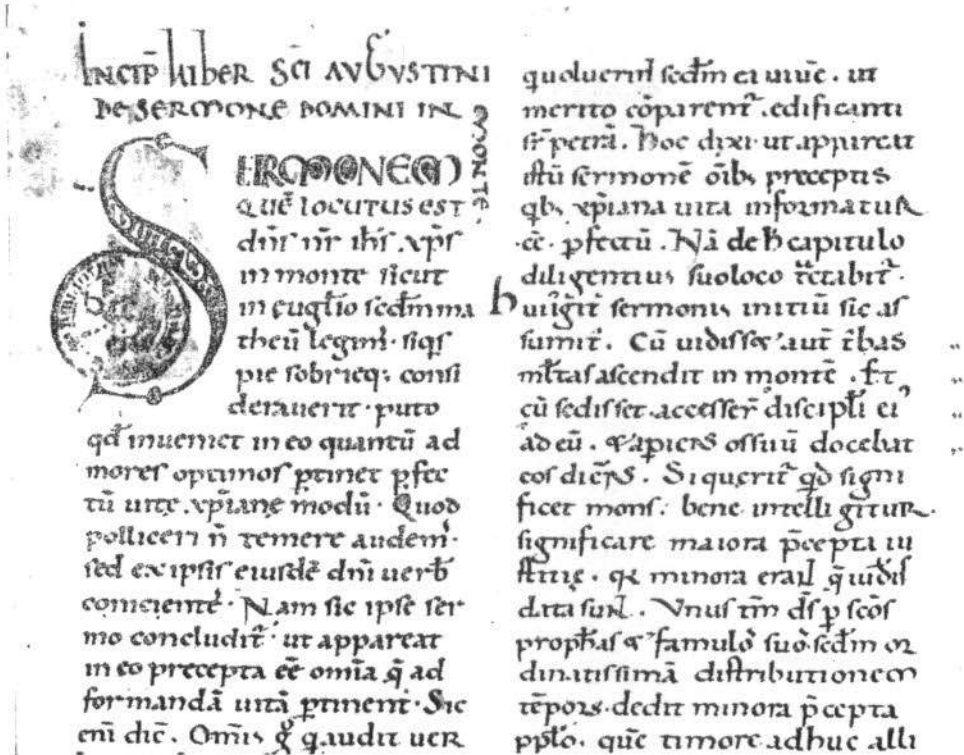 INCIP̄ LIBER SC̄I AVGVSTINI
DE SERMONE DOMINI IN
MONTE
SERMONEM
QUĒ LOCUTUS EST
dn̄s nr̄ ih̄s xp̄s
in monte sicut
in euḡlio sec̄dm ma
theū legim᾽· siq̄s
pie sobrieq; consi
deraverit · puto
qđ inueniet in eo quantū ad
mores optimos ꝑtinet ꝑfec
tū uitę xp̄ianę modū · Quod
polliceri n̄ temere audem᾽·
sed ex ipsis eiusdē dn̄i uerƀ
conicientē · Nam sic ipse ser
mo concludit᷑ · ut appareat
in eo precepta eē om̄ia q̄ ad
formandā uitā ꝑtinent · Sic
eni dic̄ . Omīs g̊ q̇ audit uer
sec̄dm ea uiuē . ut
merito cōparent᷑ . edificanti
sr̄ petrā . Hoc dixi ut appareat
istū sermonē oīb; preceptis
qb; xp̄iana uita informatur
eē · ꝑfectū . Nā de h̄ capitulo
diligentius suo loco tr̄ctabit᷑ ·
sermonis initiū sic as
sumit᷑ . Cū uidisset aut̄ t᷑bas
ml̄tas ascendit in montē . Et
cū sedisset accesser̄ discipl̄i ei᾽
ad eū . & apiens os suū docebat
eos dicēns . Si querit᷑ qđ signi
ficet mons : bene intelligitur
significare maiora p̄cepta iu
stitię . quia minora erant q̄ iudēis
data sunt . Vnus tm̄ dš ꝑ scōs
proph̄as & famulos suos sec̄dm or
dinatissimā distributionem
tēporis dedit minora p̄cepta
pp̄lo . quē timore adhuc alli